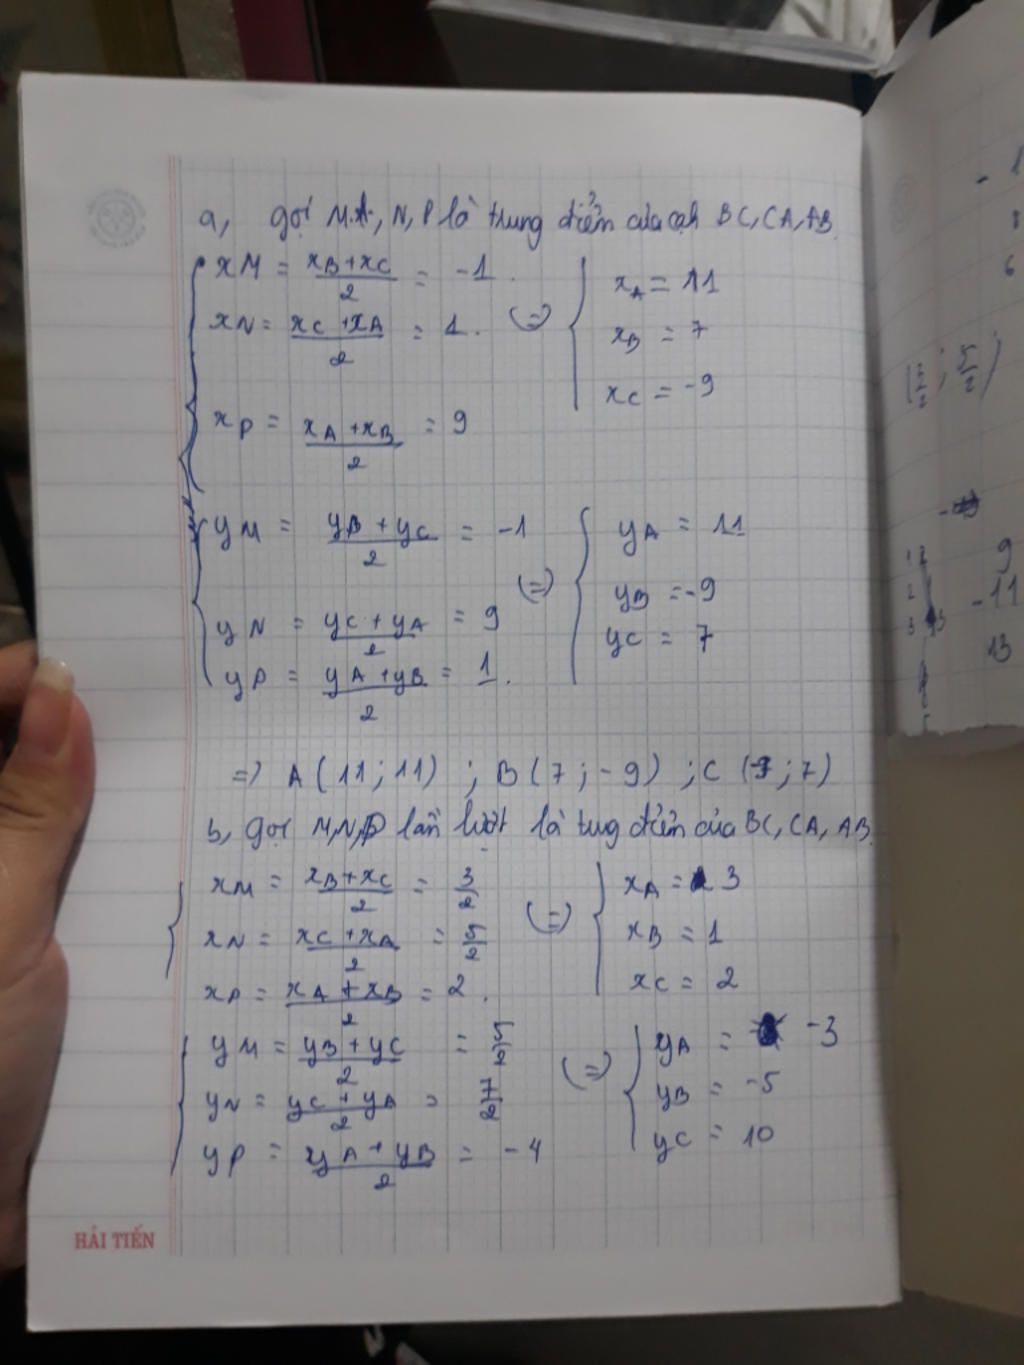 a, gọi M, N, P là trung điểm của cạh BC, CA, AB.
xM = (xB + xC)/2 = -1.
xN = (xC + xA)/2 = 1. (=)
xP = (xA + xB)/2 = 9
xA = 11
xB = 7
xC = -9
yM = (yB + yC)/2 = -1
yN = (yC + yA)/2 = 9 (=)
yP = (yA + yB)/2 = 1.
yA = 11
yB = -9
yC = 7
=) A (11 ; 11) ; B (7 ; -9) ; C ( ; 7)
b, gọi M, N, P lần lượt là tug điểm của BC, CA, AB.
xM = (xB + xC)/2 = 3/2
xN = (xC + xA)/2 = 5/2 (=)
xP = (xA + xB)/2 = 2.
xA = 3
xB = 1
xC = 2
yM = (yB + yC)/2 = 5/2
yN = (yC + yA)/2 = 7/2 (=)
yP = (yA + yB)/2 = -4
yA = -3
yB = -5
yC = 10
HẢI TIẾN
- 1
8
6
; 5/2)
9
- 11
13